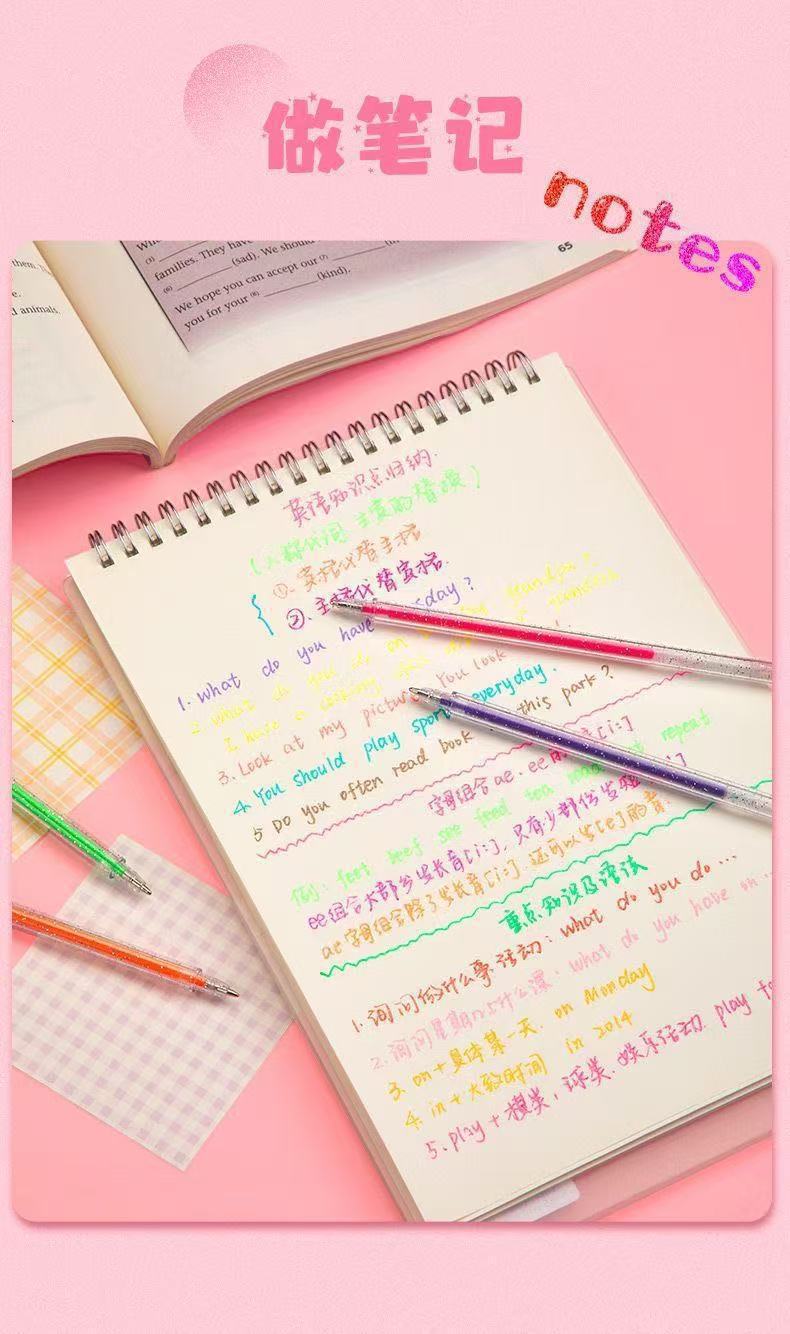 做笔记
notes
them. The
families. They have
(5) ________ (sad). We should
(6) ________ (kind).
We hope you can accept our (7) ________ (
you for your (8) ________ (kind).
65
e.
d animals.
英语知识点归纳
(人称代词 主宾的替换)
①. 宾格代替主格
②. 主格代替宾格
1. What do you have sday?
2. What do you do on grandpa?
I have a cooking
3. Look at my pictur You look
4. You should play spor everyday.
5 Do you often read book this park?
字母组合 ae. ee 音[i:]
例: feet beef see feed tea read repeat
ee组合大部分发长音[i:], 只有少部份发短
ae字母组合除了发长音[i:]. 还可以发[e]的音.
重点知识及语法
1. 询问你什么事活动: what do you do ...
2. 询问星期几上什么课: what do you have on ...
3. on + 具体某一天. on Monday
4. in + 大致时间 in 2014
5. play + 棋类, 球类. 娱乐活动. play